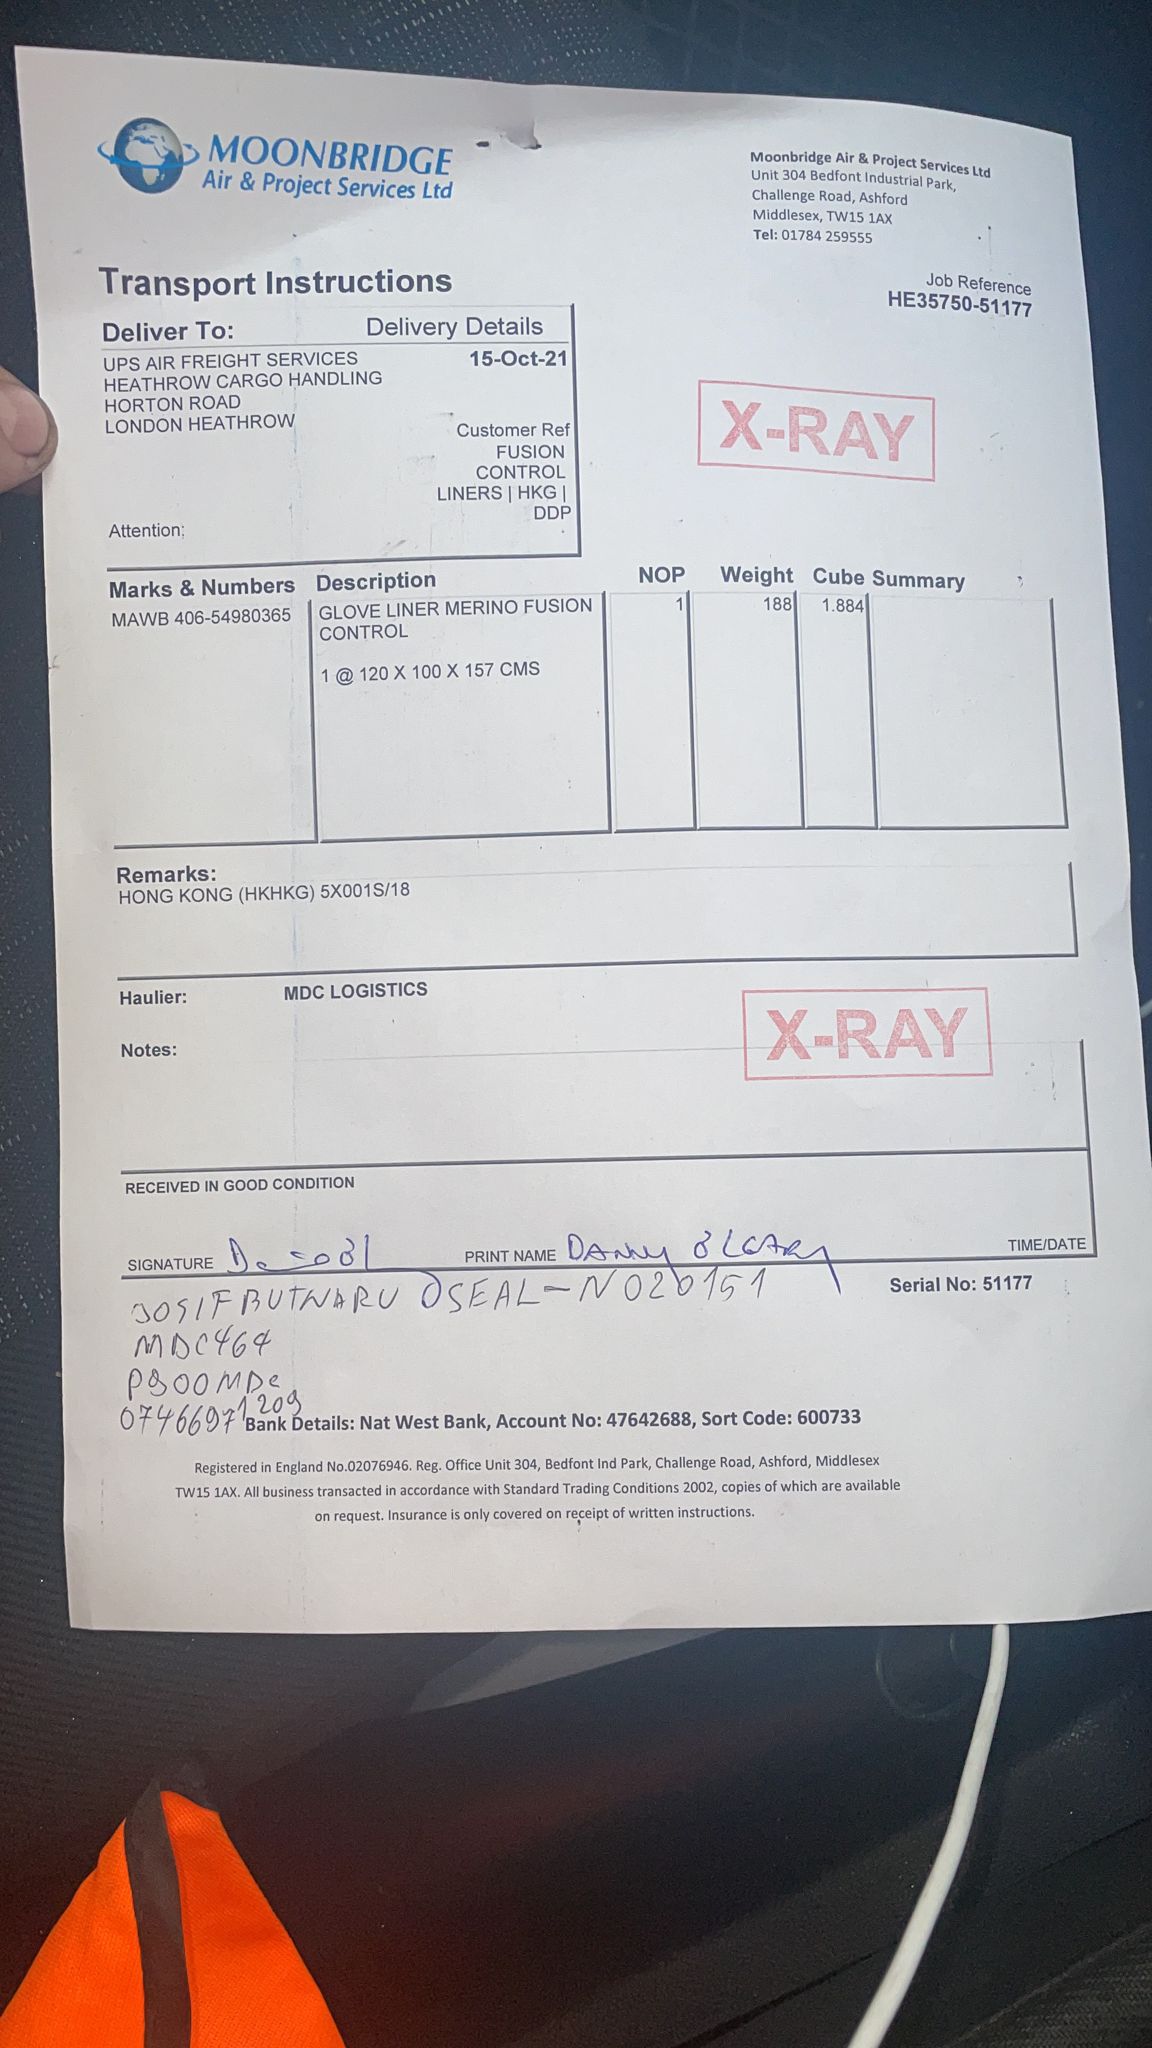 MOONBRIDGE
Air & Project Services Ltd
Moonbridge Air & Project Services Ltd
Unit 304 Bedfont Industrial Park,
Challenge Road, Ashford
Middlesex, TW15 1AX
Tel: 01784 259555
Transport Instructions
Job Reference
HE35750-51177
Deliver To: Delivery Details
UPS AIR FREIGHT SERVICES 15-Oct-21
HEATHROW CARGO HANDLING
HORTON ROAD
LONDON HEATHROW
Customer Ref
FUSION
CONTROL
LINERS | HKG |
DDP
Attention:
X-RAY
Marks & Numbers Description NOP Weight Cube Summary
MAWB 406-54980365 GLOVE LINER MERINO FUSION 1 188 1.884
CONTROL
1 @ 120 X 100 X 157 CMS
Remarks:
HONG KONG (HKHKG) 5X001S/18
Haulier: MDC LOGISTICS
X-RAY
Notes:
RECEIVED IN GOOD CONDITION
SIGNATURE PRINT NAME DANNY O'LEARY TIME/DATE
Serial No: 51177
JOSIF BUTNARU SEAL-N020151
MDC464
P900MDC
07466971209
Bank Details: Nat West Bank, Account No: 47642688, Sort Code: 600733
Registered in England No.02076946. Reg. Office Unit 304, Bedfont Ind Park, Challenge Road, Ashford, Middlesex
TW15 1AX. All business transacted in accordance with Standard Trading Conditions 2002, copies of which are available
on request. Insurance is only covered on receipt of written instructions.